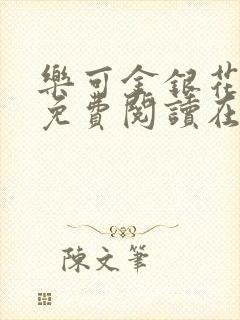 樂可金銀花
免費閱讀在
陳文筆